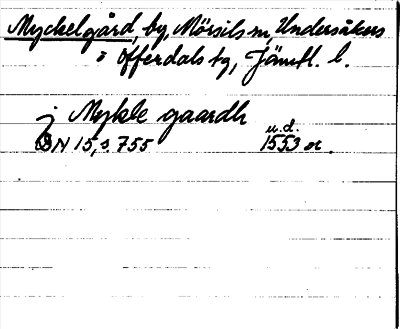 Myckelgård, by, Mörsils sn, Undersåkers
o Offerdals tg, Jämtl. l.
j Mykle gaardh
u.d.
DN 15, s. 755 1553 or.